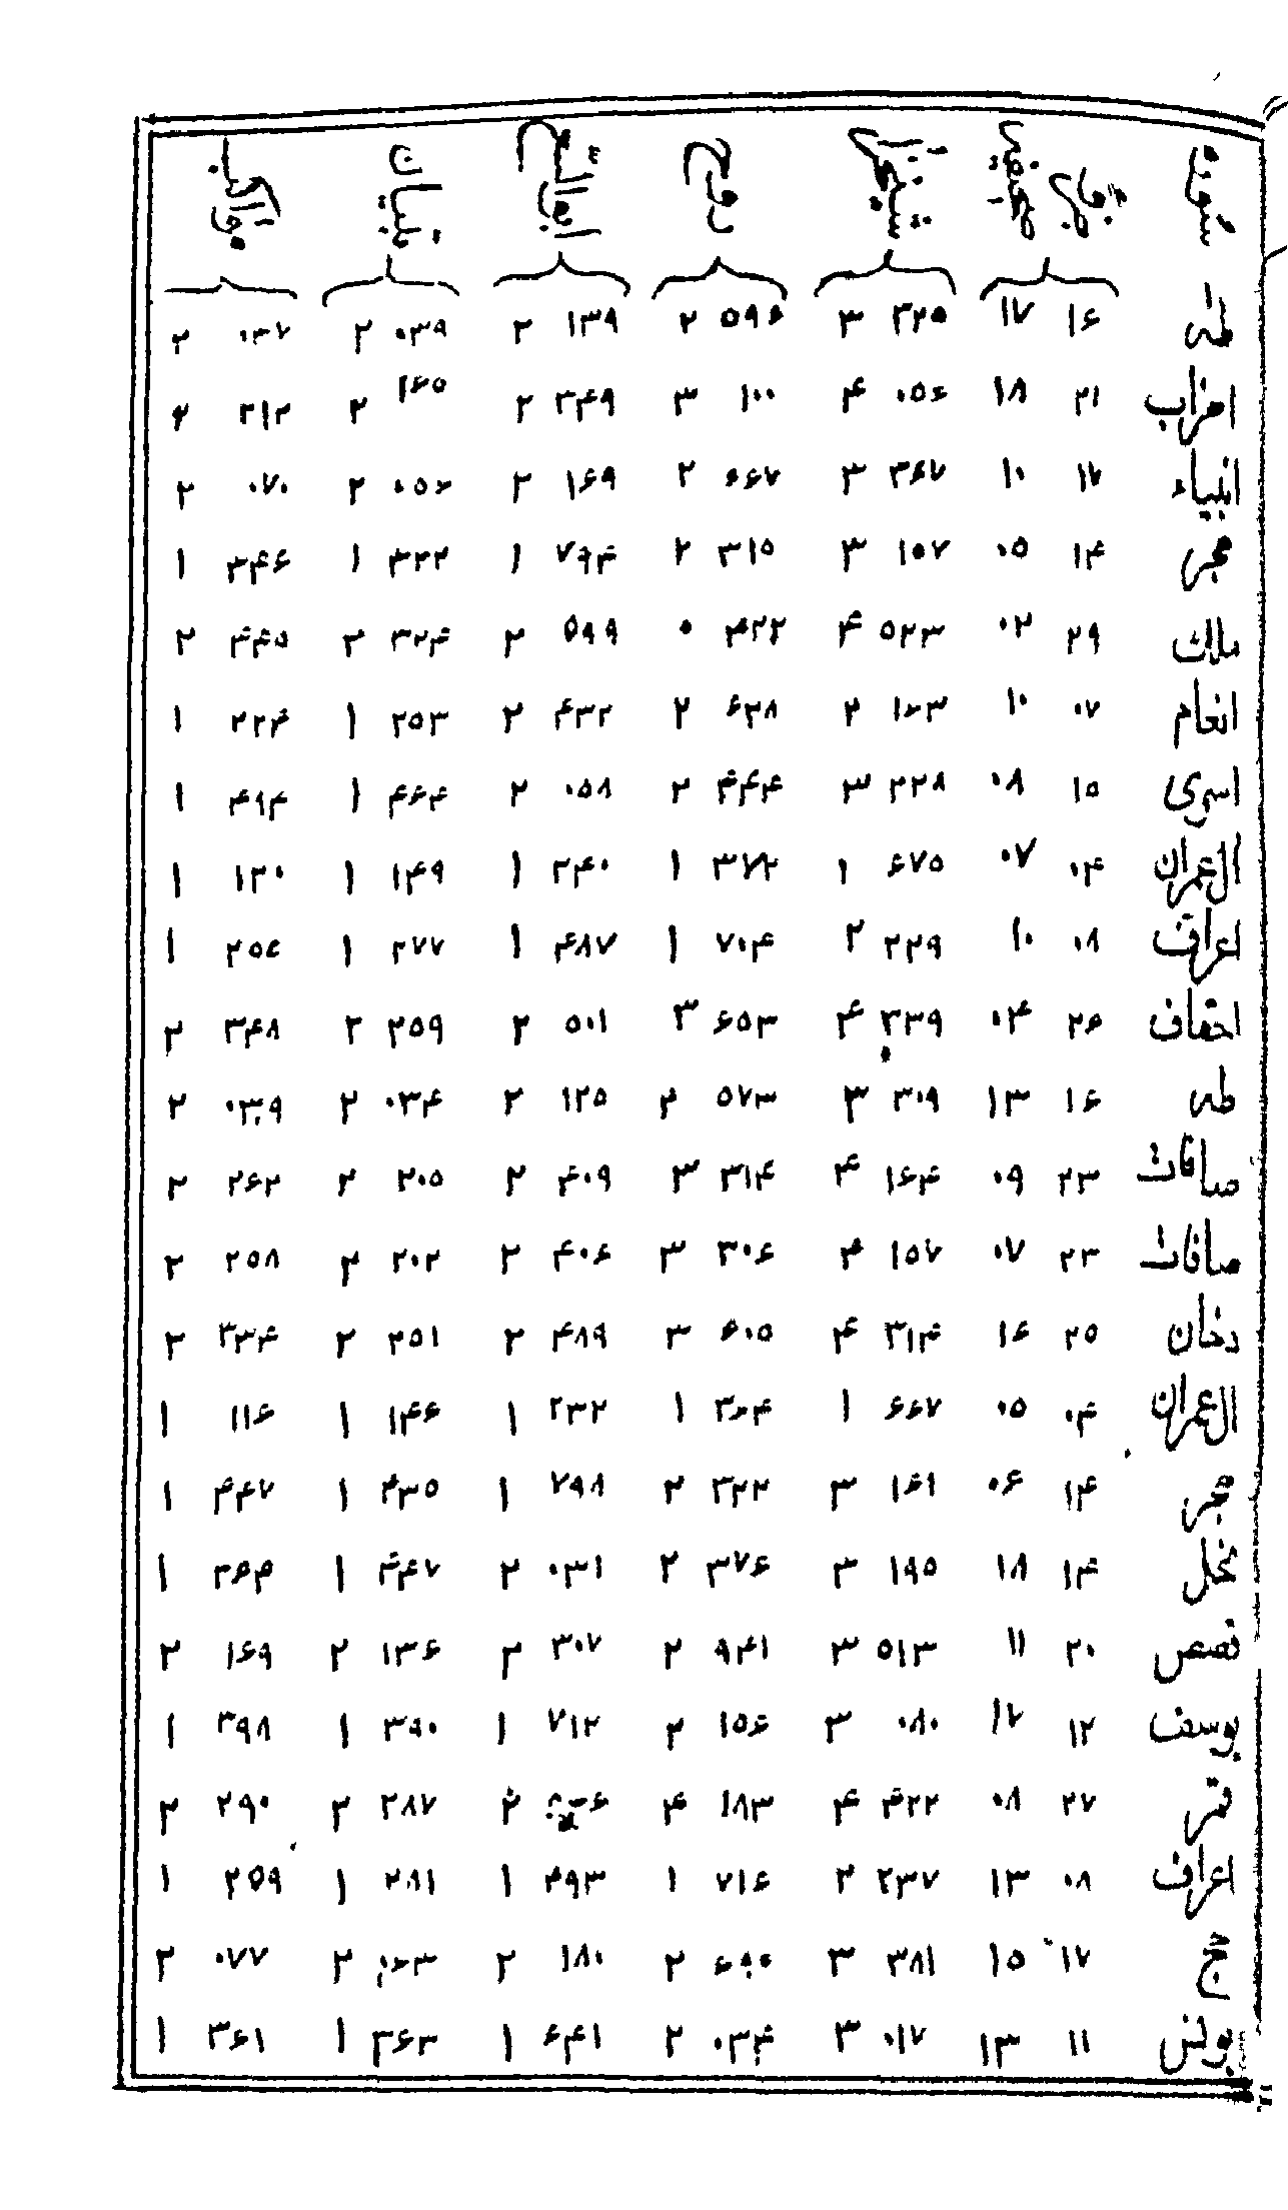 سوره جزو صفحه روح ابوالفتح تبیان
طه ۱۶ ۱۷ ۳۲۵ ۳ ۵۹۶ ۲ ۱۳۹ ۲ ۰۳۹ ۲ ۰۳۷ ۲
احزاب ۲۱ ۱۸ ۰۵۶ ۴ ۱۰۰ ۳ ۳۴۹ ۲ ۱۶۵ ۲ ۲۱۲ ۲
انبیاء ۱۷ ۱۰ ۳۶۷ ۳ ۶۶۷ ۲ ۱۶۹ ۲ ۰۵۶ ۲ ۰۷۰ ۲
حجر ۱۴ ۰۵ ۱۵۷ ۳ ۳۱۵ ۲ ۷۹۴ ۱ ۳۲۲ ۱ ۳۴۶ ۱
ملک ۲۹ ۰۲ ۵۲۳ ۴ ۴۲۲ ۵ ۵۹۹ ۲ ۳۲۴ ۲ ۴۴۵ ۲
انعام ۰۷ ۱۰ ۱۶۳ ۲ ۶۲۸ ۲ ۴۳۲ ۲ ۲۵۳ ۱ ۲۲۴ ۱
اسری ۱۵ ۰۸ ۲۲۸ ۳ ۴۴۴ ۲ ۰۵۸ ۲ ۴۶۴ ۱ ۴۱۴ ۱
ال عمران ۰۴ ۰۷ ۶۷۵ ۱ ۳۷۲ ۱ ۲۴۰ ۱ ۱۴۹ ۱ ۱۲۰ ۱
اعراف ۰۸ ۱۰ ۲۲۹ ۲ ۷۰۴ ۱ ۴۸۷ ۱ ۲۷۷ ۱ ۲۵۶ ۱
احقاف ۲۶ ۰۴ ۳۳۹ ۴ ۶۵۳ ۳ ۵۰۱ ۲ ۲۵۹ ۲ ۳۴۸ ۲
طه ۱۶ ۱۳ ۳۰۹ ۳ ۵۷۳ ۲ ۱۲۵ ۲ ۰۳۴ ۲ ۰۳۹ ۲
صافات ۲۳ ۰۹ ۱۶۴ ۴ ۳۱۴ ۳ ۴۰۹ ۲ ۲۰۵ ۲ ۲۶۲ ۲
صافات ۲۳ ۰۷ ۱۵۷ ۴ ۳۰۶ ۳ ۴۰۶ ۲ ۲۰۲ ۲ ۲۵۸ ۲
دخان ۲۵ ۱۶ ۳۱۴ ۴ ۶۰۵ ۳ ۴۸۹ ۲ ۲۵۱ ۲ ۳۳۴ ۲
ال عمران ۰۴ ۰۵ ۶۶۷ ۱ ۳۶۴ ۱ ۲۳۲ ۱ ۱۴۶ ۱ ۱۱۶ ۱
حجر ۱۴ ۰۶ ۱۶۱ ۳ ۳۲۲ ۲ ۷۹۸ ۱ ۴۳۵ ۱ ۴۴۷ ۱
نحل ۱۴ ۱۸ ۱۹۵ ۳ ۳۷۶ ۲ ۰۳۱ ۲ ۴۴۷ ۱ ۱
قصص ۲۰ ۱۱ ۵۱۳ ۳ ۹۴۱ ۲ ۳۰۷ ۲ ۱۳۶ ۲ ۱۶۹ ۲
یوسف ۱۲ ۱۷ ۰۸۰ ۳ ۱۵۶ ۲ ۷۱۲ ۱ ۳۹۰ ۱ ۳۹۸ ۱
قمر ۲۷ ۰۸ ۴۲۲ ۴ ۱۸۳ ۴ ۲ ۲۸۷ ۲ ۲۹۰ ۲
اعراف ۰۸ ۱۳ ۲۳۷ ۲ ۷۱۶ ۱ ۴۹۳ ۱ ۲۸۱ ۱ ۲۵۹ ۱
حج ۱۷ ۱۵ ۳۸۱ ۳ ۶۹۰ ۲ ۱۸۰ ۲ ۰۶۳ ۲ ۰۷۷ ۲
یونس ۱۱ ۱۳ ۰۱۷ ۳ ۰۳۴ ۲ ۶۴۱ ۱ ۳۶۳ ۱ ۳۶۱ ۱